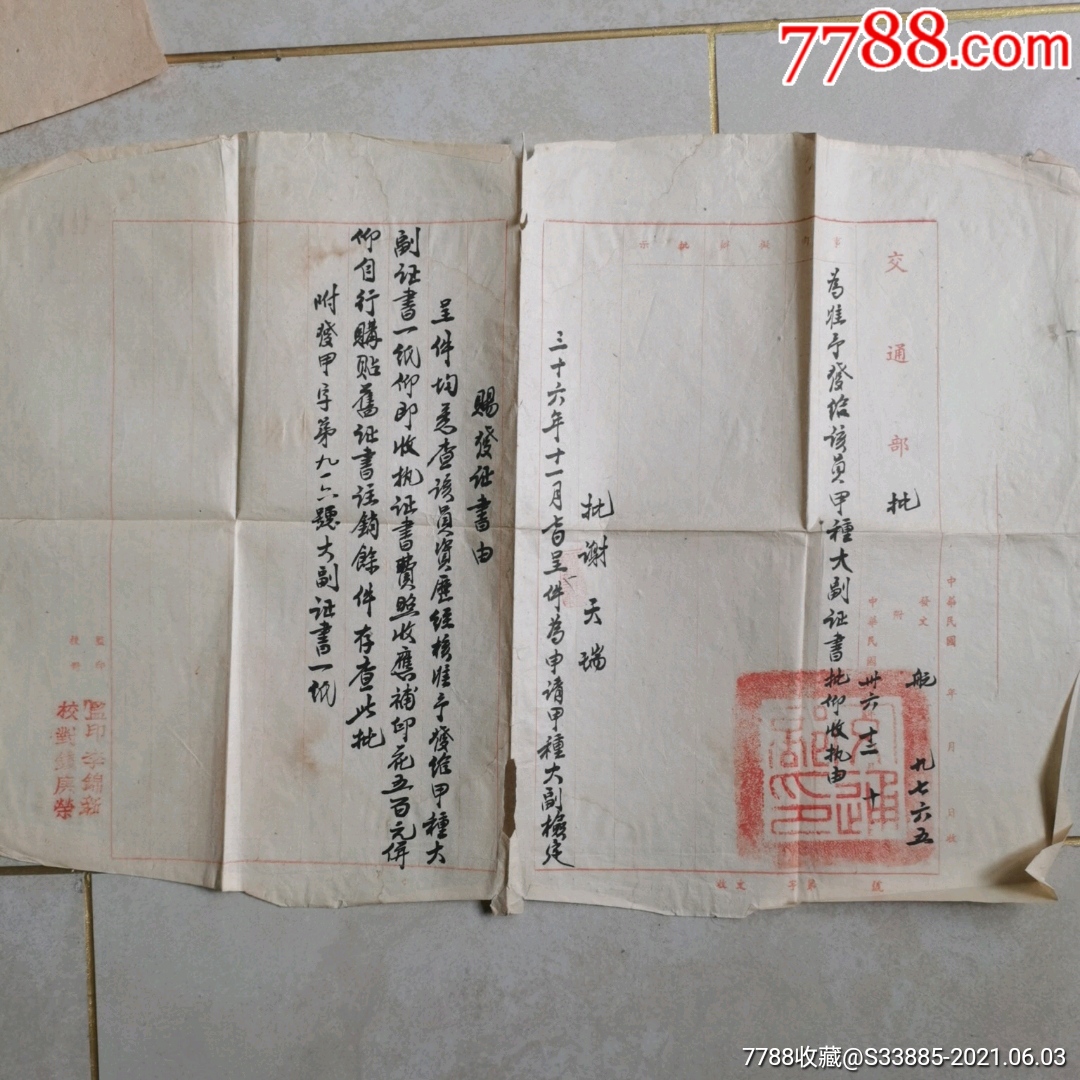 7788.com
中華民國 年 月 日收
航 九七六五
發文
附
中華民國
卅六 十二 十
交通部 批
為准予發給該員甲種大副证書批仰收执由
批 示
批謝天瑞
三十六年十一月 日呈件為申請甲種大副檢定
賜發证書由
呈件均悉查該員資歷經核准予發給甲種大
副证書一紙仰即收执证書費照收應補印花五百元併
仰自行購貼舊证書註銷餘件存查此批
附發甲字第九一六號大副证書一紙
監印
校對
監印 李錦新
校對 庚榮
收文 字第 號
7788收藏@S33885-2021.06.03